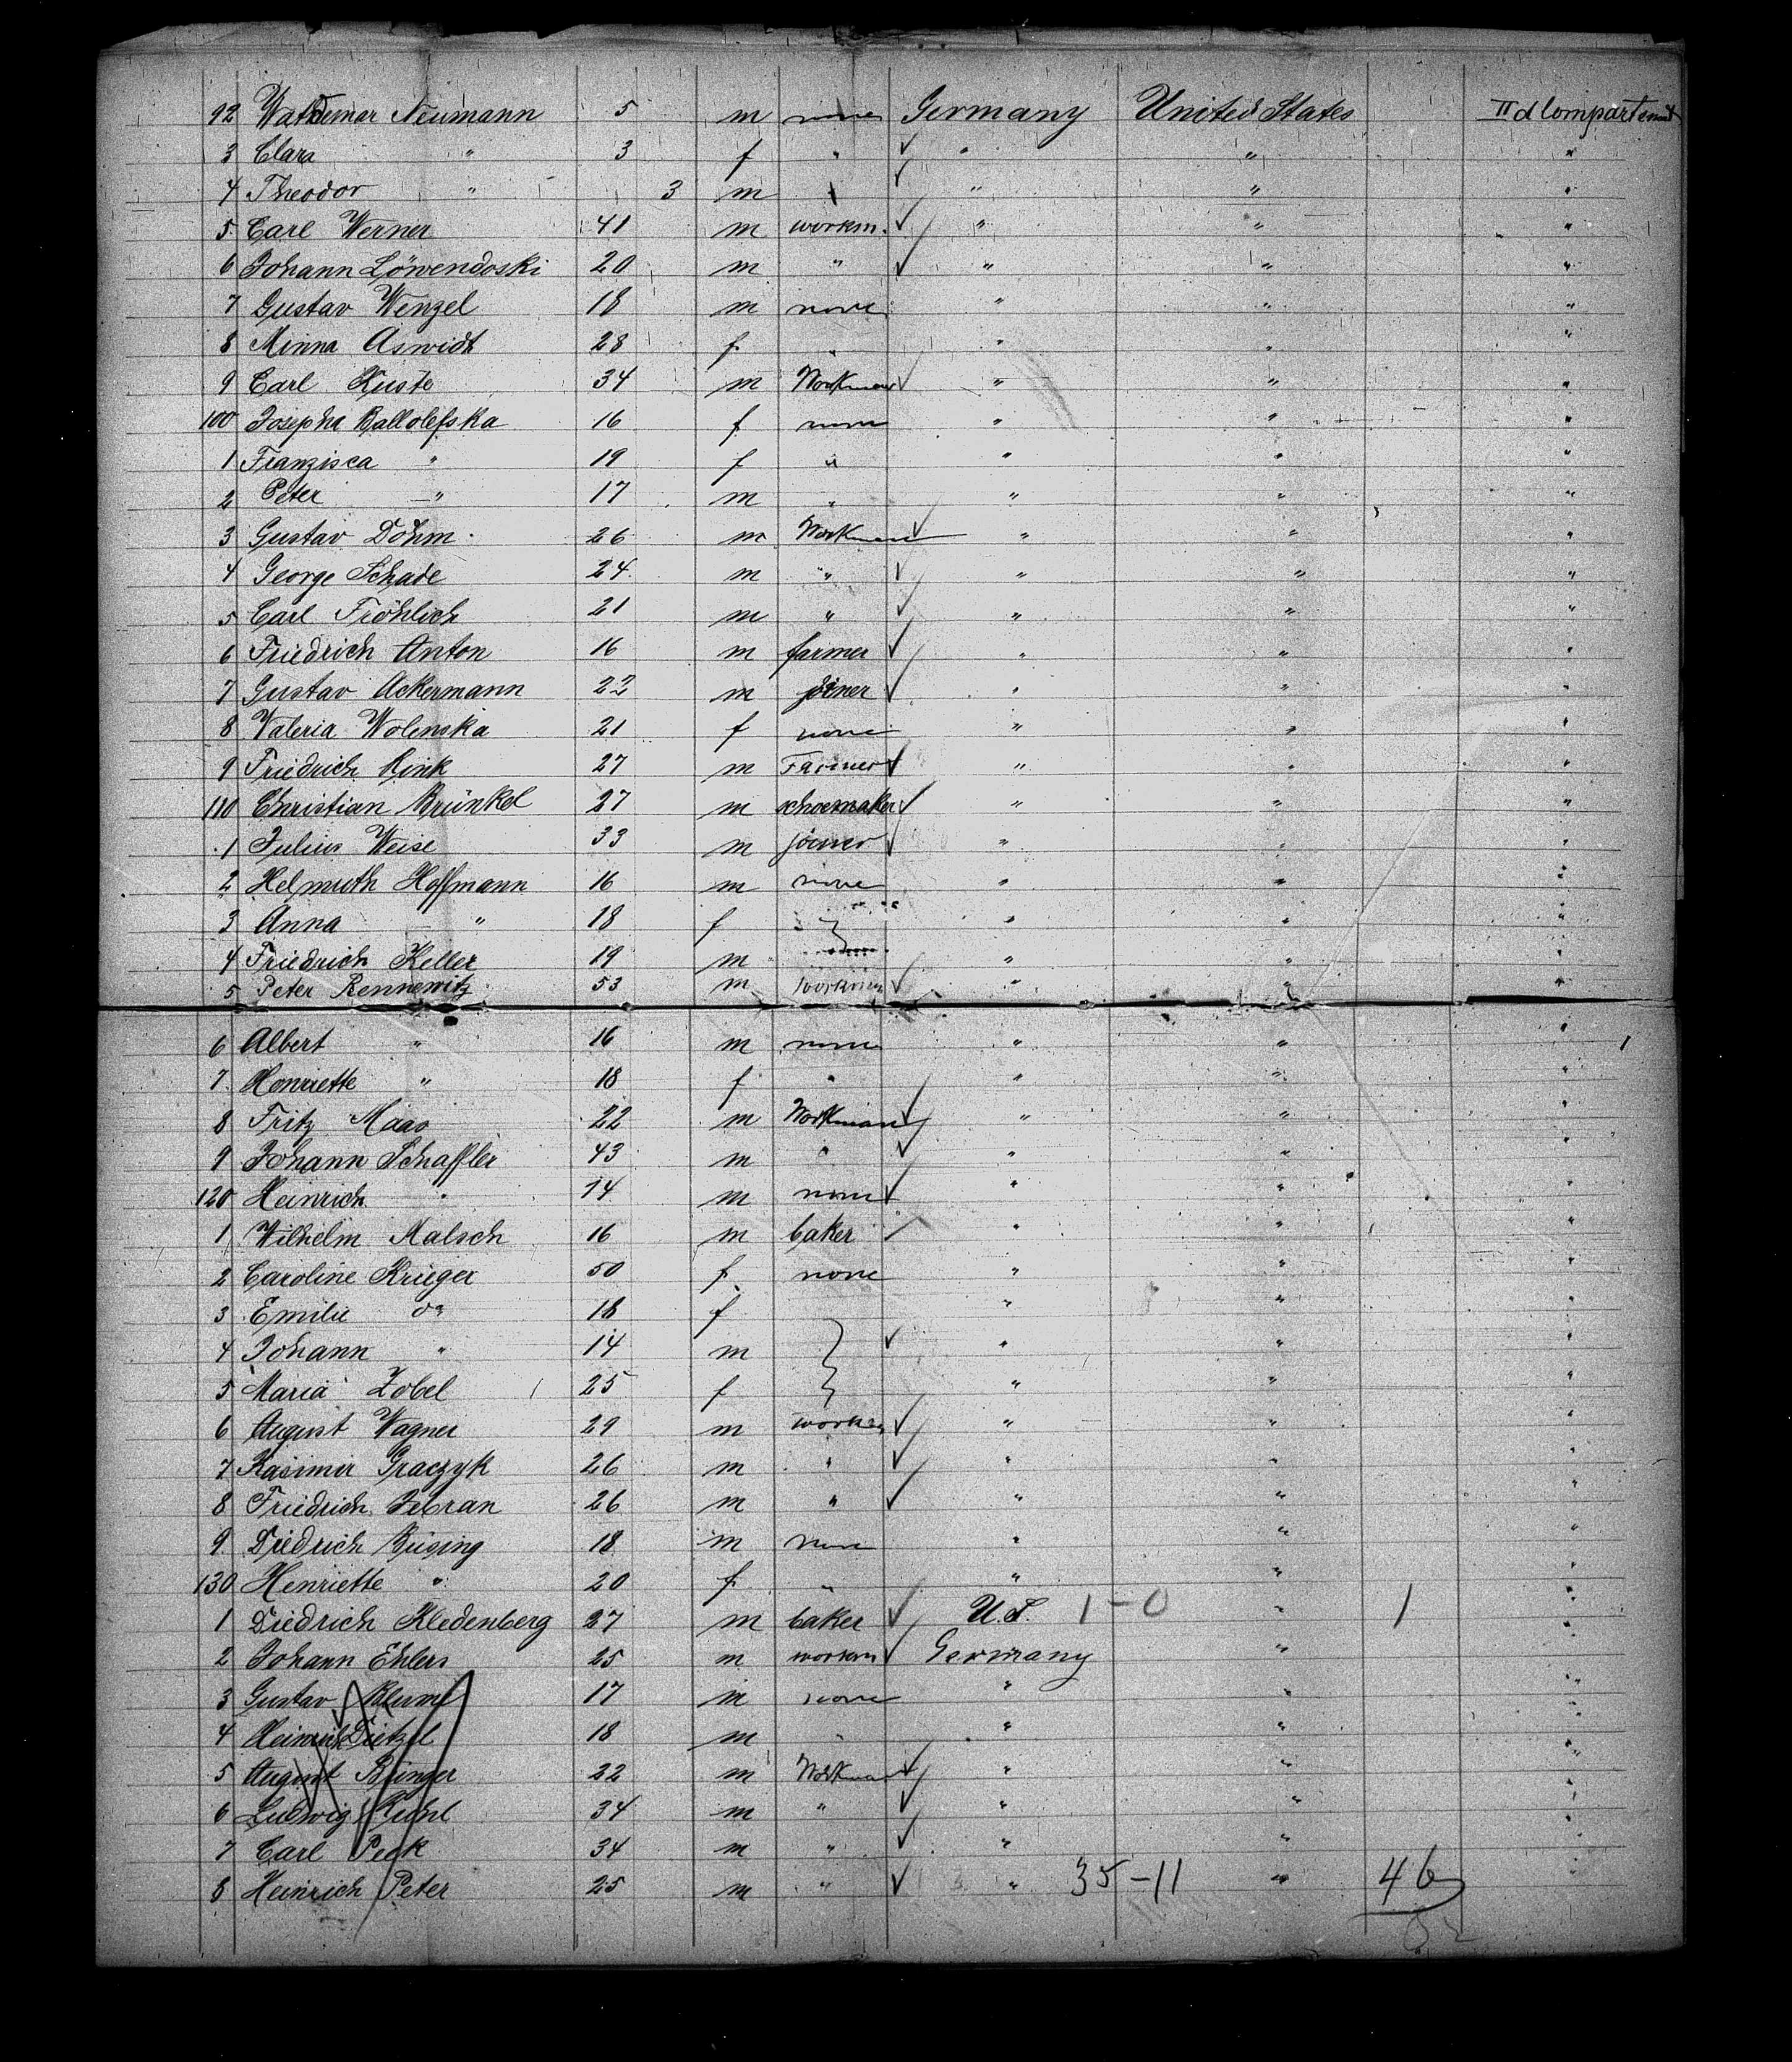 92 Waldemar Neumann 5 m none Germany United States IId Compartement
3 Clara " 3 f " " " "
4 Theodor " 3 m " " " "
5 Carl Werner 41 m workm. " " "
6 Johann Löwendoski 20 m " " " "
7 Gustav Wenzel 18 m none " " "
8 Minna Aswidt 28 f " " " "
9 Carl Kuste 34 m Workman " " "
100 Josepha Ballolefska 16 f none " " "
1 Franzisca " 19 f " " " "
2 Peter " 17 m " " " "
3 Gustav Döhm 26 m Workman " " "
4 George Schade 24 m " " " "
5 Carl Fröhlich 21 m " " " "
6 Friedrich Anton 16 m farmer " " "
7 Gustav Ackermann 22 m joiner " " "
8 Valeria Wolenska 21 f none " " "
9 Friedrich Rink 27 m Farmer " " "
110 Christian Brünkel 27 m schoemaker " " "
1 Julius Weise 33 m joiner " " "
2 Helmuth Hoffmann 16 m none " " "
3 Anna " 18 f " " "
4 Friedrich Keller 19 m " " "
5 Peter Rennewitz 53 m workman " " "
6 Albert " 16 m none " " "
7 Henriette " 18 f " " " "
8 Fritz Maas 22 m Workman " " "
9 Johann Schaffler 43 m " " " "
120 Heinrich " 14 m none " " "
1 Wilhelm Malsch 16 m baker " " "
2 Caroline Krieger 50 f none " " "
3 Emilie do 18 f " " "
4 Johann " 14 m " " "
5 Maria Zobel 25 f " " "
6 August Wagner 29 m workm " " "
7 Kasimir Graczyk 26 m " " " "
8 Friedrich Zebran 26 m " " " "
9 Diedrich Büsing 18 m none " " "
130 Henriette " 20 f " " " "
1 Diedrich Kledenberg 27 m baker U.S. 1-0 " 1 "
2 Johann Ehlers 25 m workm Germany " "
3 Gustav Blume 17 m none " " "
4 Heinrich Dietzel 18 m " " " "
5 August Bünger 22 m Workman " " "
6 Ludwig Kuhl 34 m " " " "
7 Carl Peck 34 m " " " "
8 Heinrich Peter 25 m " " 35-11 " 46 "